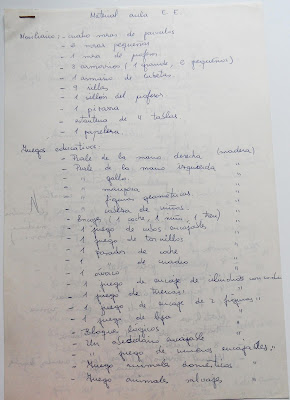 Material aula E.E
Mobiliario: - cuatro mesas de párvulos
- 4 mesas pequeñas
- 1 mesa de profesor
- 3 armarios (1 grande, 2 pequeños)
- 1 armario de cubetas
- 9 sillas
- 1 sillón del profesor
- 1 pizarra
- estantería de 4 tablas
- 1 papelera.
Juegos educativos: - Puzle de la mano derecha (madera)
- Puzle de la mano izquierda "
- " gallo "
- " mariposa "
- " figuras geométricas "
- " cabeza de niños "
- (1 coche, 1 niña, 1 tren) "
- 1 juego de cubos encajables "
- 1 juego de tornillos "
- 1 de coche "
- 1 " de "
- 1 ábaco "
- 1 juego de encaje de cilindros
- 1 juego de "
- 1 juego de encaje de 2 figuras "
- 1 juego de "
- Bloques lógicos "
- Un abecedario encajable
- " juego de números encajables "
- Juego animales domésticos "
- Juego animales salvajes "